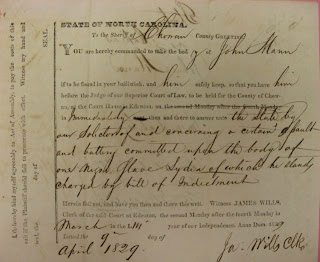 STATE OF NORTH CAROLINA.
To the Sheriff of Chowan County GREETING
YOU are hereby commanded to take the body of a John Mann
if to be found in your bailiwick, and him safely keep, so that you have him
before the Judge of our Superior Court of Law, to be held for the County of Chowan,
at the Court House in Edenton, the second Monday after the fourth Monday
in Immediately then and there to answer unto the State by
our Solicitor of and concerning a certain assault
and battery committed upon the body of
one Negro Slave Lydia of which he stands
charged by bill of Indictment
Herein fail not, and have you then and there this writ. Witness JAMES WILLS,
Clerk of the said Court at Edenton, the second Monday after the fourth Monday in
March in the year of our Independence Anno Dom. 1829
Issued the 9th day of
April 1829. Ja. Wills Clk
SEAL.
Witness my hand and
I do hereby bind myself agreeably to Act of Assembly, to pay the costs of this
suit if the Plaintiff should fail to prosecute with effect.
seal, the day of